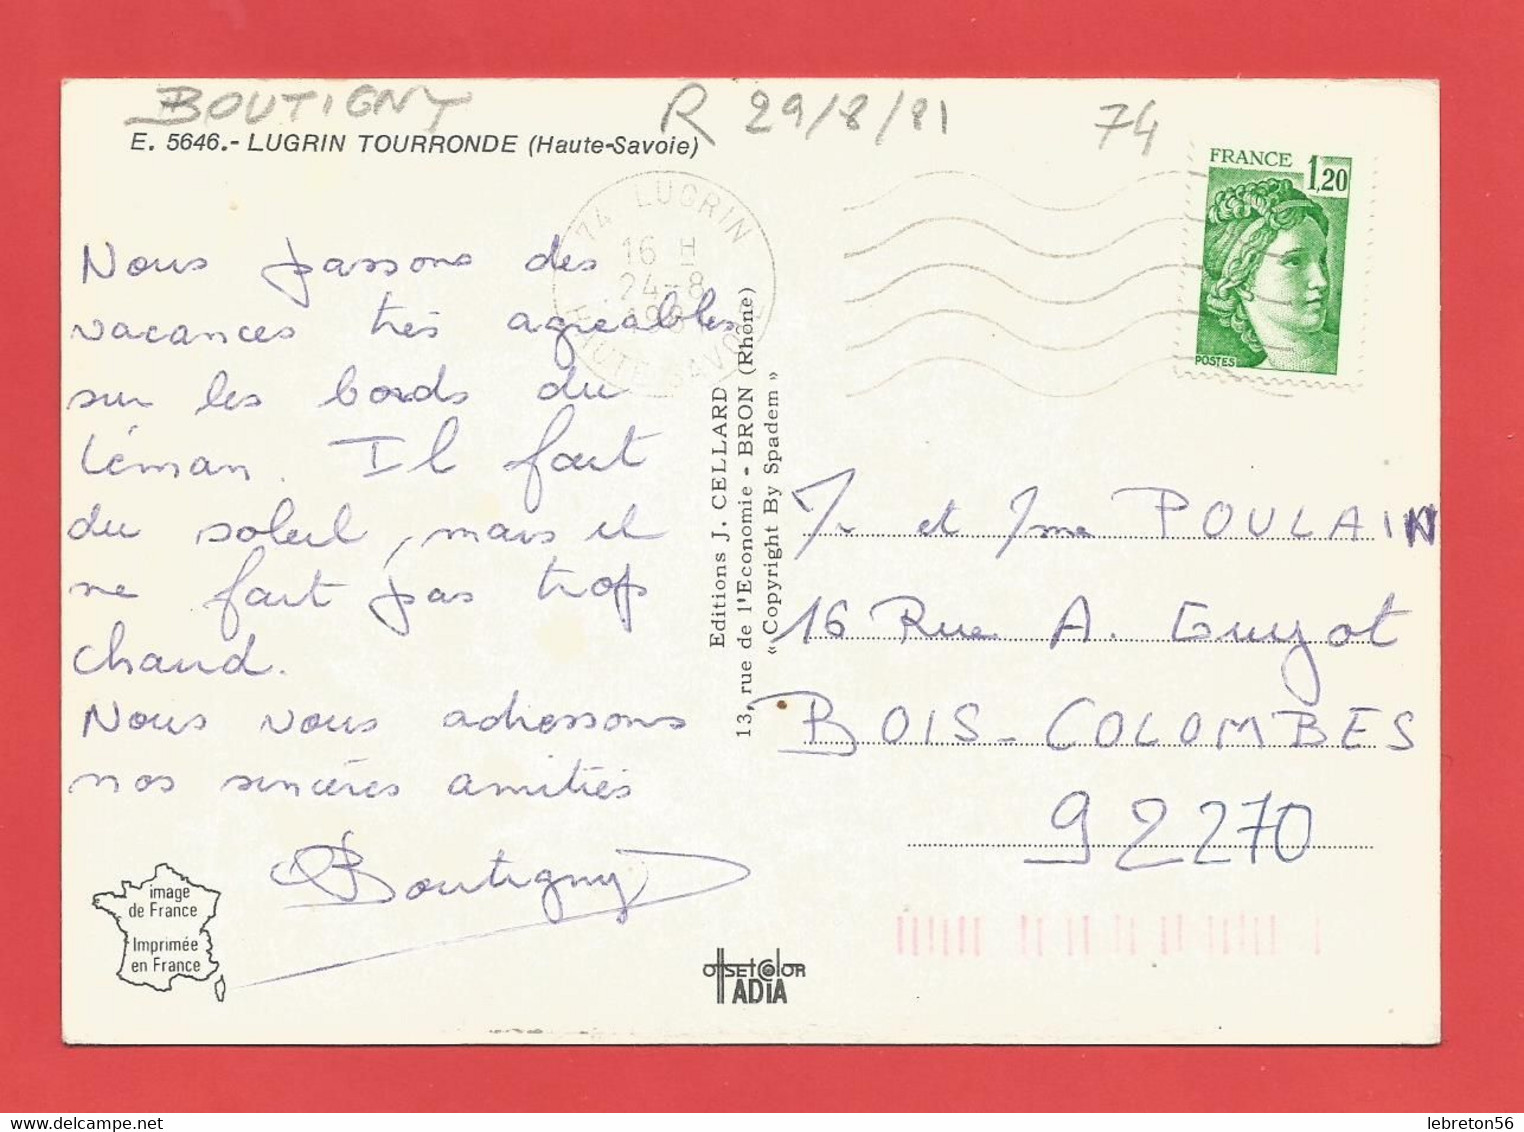 BOUTIGNY R 29/8/81 74
E. 5646.- LUGRIN TOURRONDE (Haute-Savoie)
FRANCE 1,20
POSTES
74 LUGRIN
16 H
24-8
HAUTE SAVOIE
Nous passons des
vacances très agréables
sur les bords du
Léman. Il fait
du soleil, mais il
ne fait pas trop
chaud.
Nous vous adressons
nos sincères amitiés
Boutigny
image
de France
Imprimée
en France
Editions J. CELLARD
13, rue de l'Economie - BRON (Rhône)
« Copyright By Spadem »
OFFSET COLOR
IADIA
Mr et Mme POULAIN
16 Rue A. Guyot
BOIS-COLOMBES
92270
lebreton56